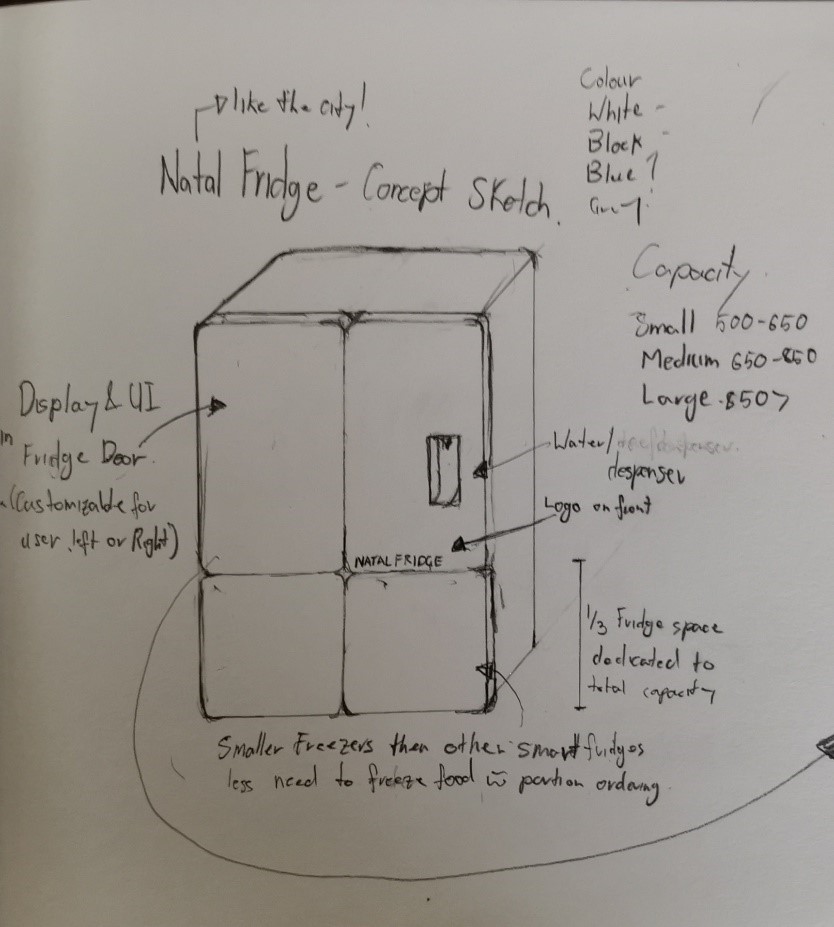 like the city!
Natal Fridge - Concept Sketch.
Colour
White -
Black -
Blue ?
Grey
Capacity
Small 500-650
Medium 650-850
Large 850>
Display & UI
in
Fridge Door
(Customizable for
user left or Right)
Water/
despenser
Logo on front
NATAL FRIDGE
1/3 Fridge space
dedicated to
total capacity
Smaller Freezers then other smart fridges
less need to freeze food w portion ordering.